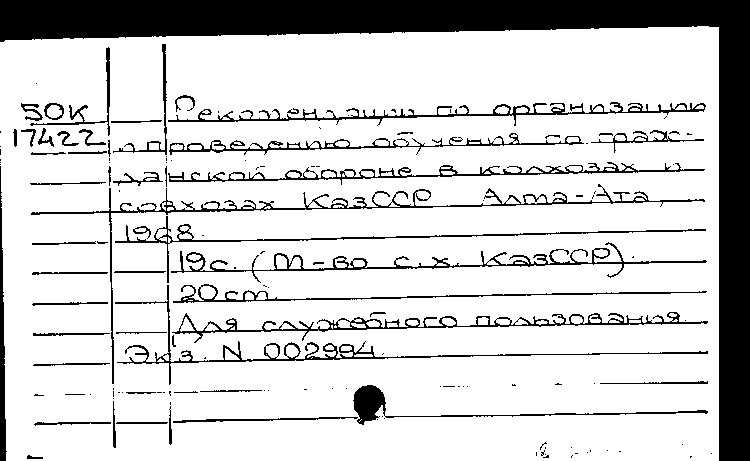 50К
17422
Рекомендации по организации
и проведению обучения по граж-
данской обороне в колхозах и
совхозах КазССР Алма-Ата,
1968.
19с. (М-во с.х. КазССР).
20см.
Для служебного пользования
Экз. N 002994.